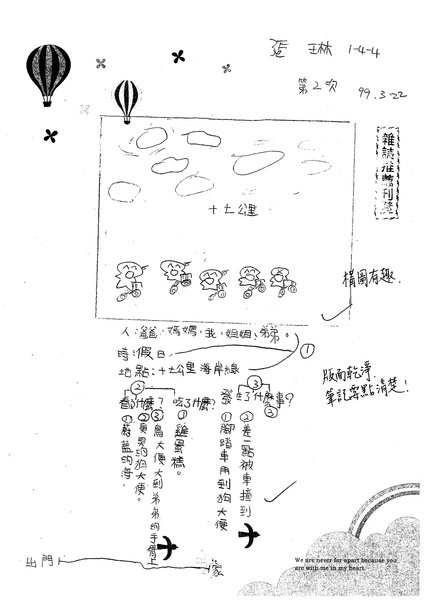 張 琳 1-4-4
第2次 99.3.22
雜誌推薦刊登
十七公里
構圖有趣.
人:爸爸,媽媽,我,姐姐,弟弟。
時:假日
①
地點:十七公里海岸線
版面乾淨.
筆記要點清楚!
②
看了什麼?
①蔚藍的海。
②臭臭的狗大便。
③鳥大便大到弟弟的手臂上
吃了什麼?
①雞蛋糕。
③
發生了什麼事?
①腳踏車用到狗大便
②差一點被車撞到
We are never far apart because you
are with me in my heart.
出門 家